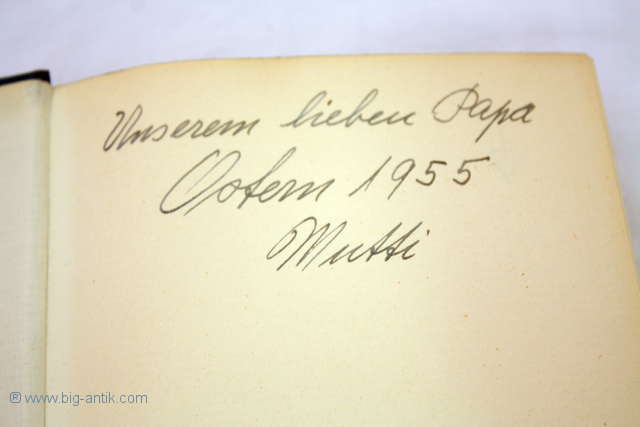 Unserem lieben Papa
Ostern 1955
Mutti
® www.big-antik.com